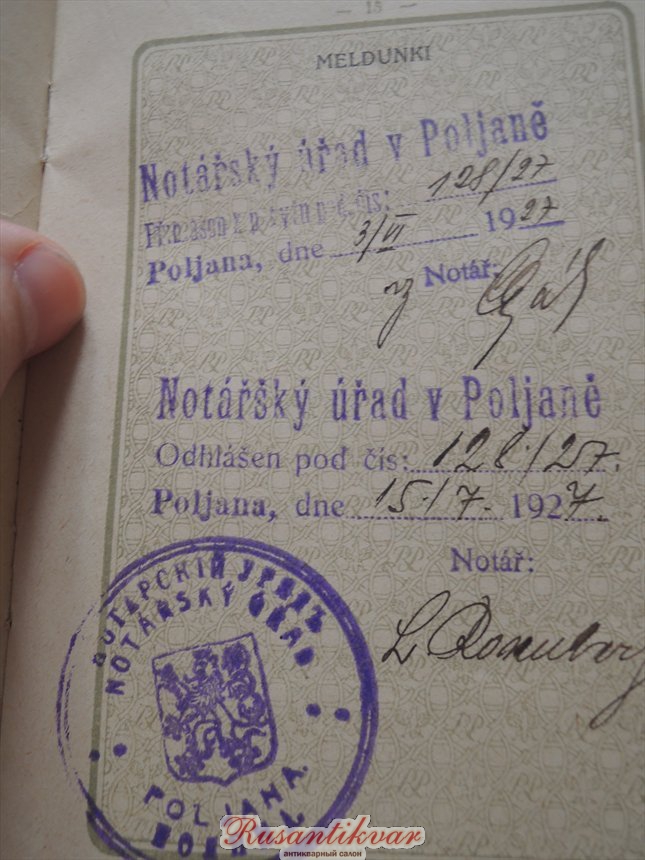 — 15 —
MELDUNKI
Notářský úřad v Poljaně
čís: 128/27
Poljana, dne 3/VI 1927
Notář:
Notářšký úřad v Poljaně
Odhlášen pod čís: 128/27.
Poljana, dne 15./7. 1927.
Notář:
NOTÁŘSKÝ ÚŘAD
POLJANA.
Rusantikvar
антикварный салон